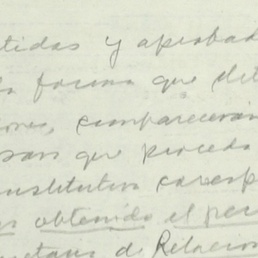 tidas y aprobad
la forma que det
ones, comparecerán
san que proceda
nstitutiva corresp
es obtenido el per
retario de Relacion